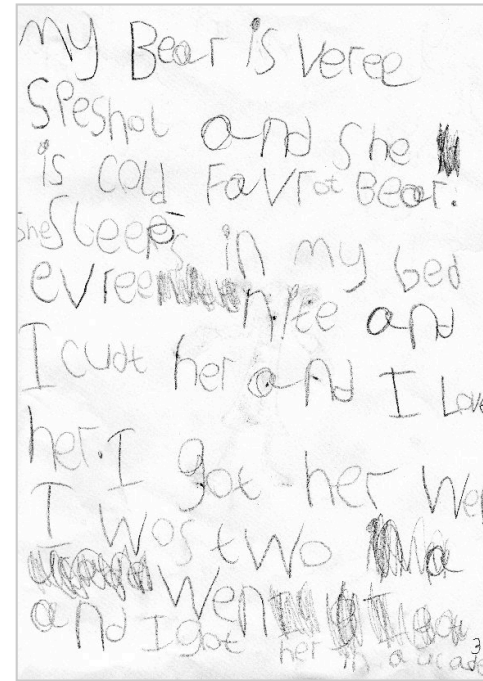 my Bear is veree
Speshol and She
is cold FaVrot Bear.
She Sleeps in my bed
evree nite and
I cudt her and I Love
her. I got her wen
I wos two
wen
and I got her in a
3